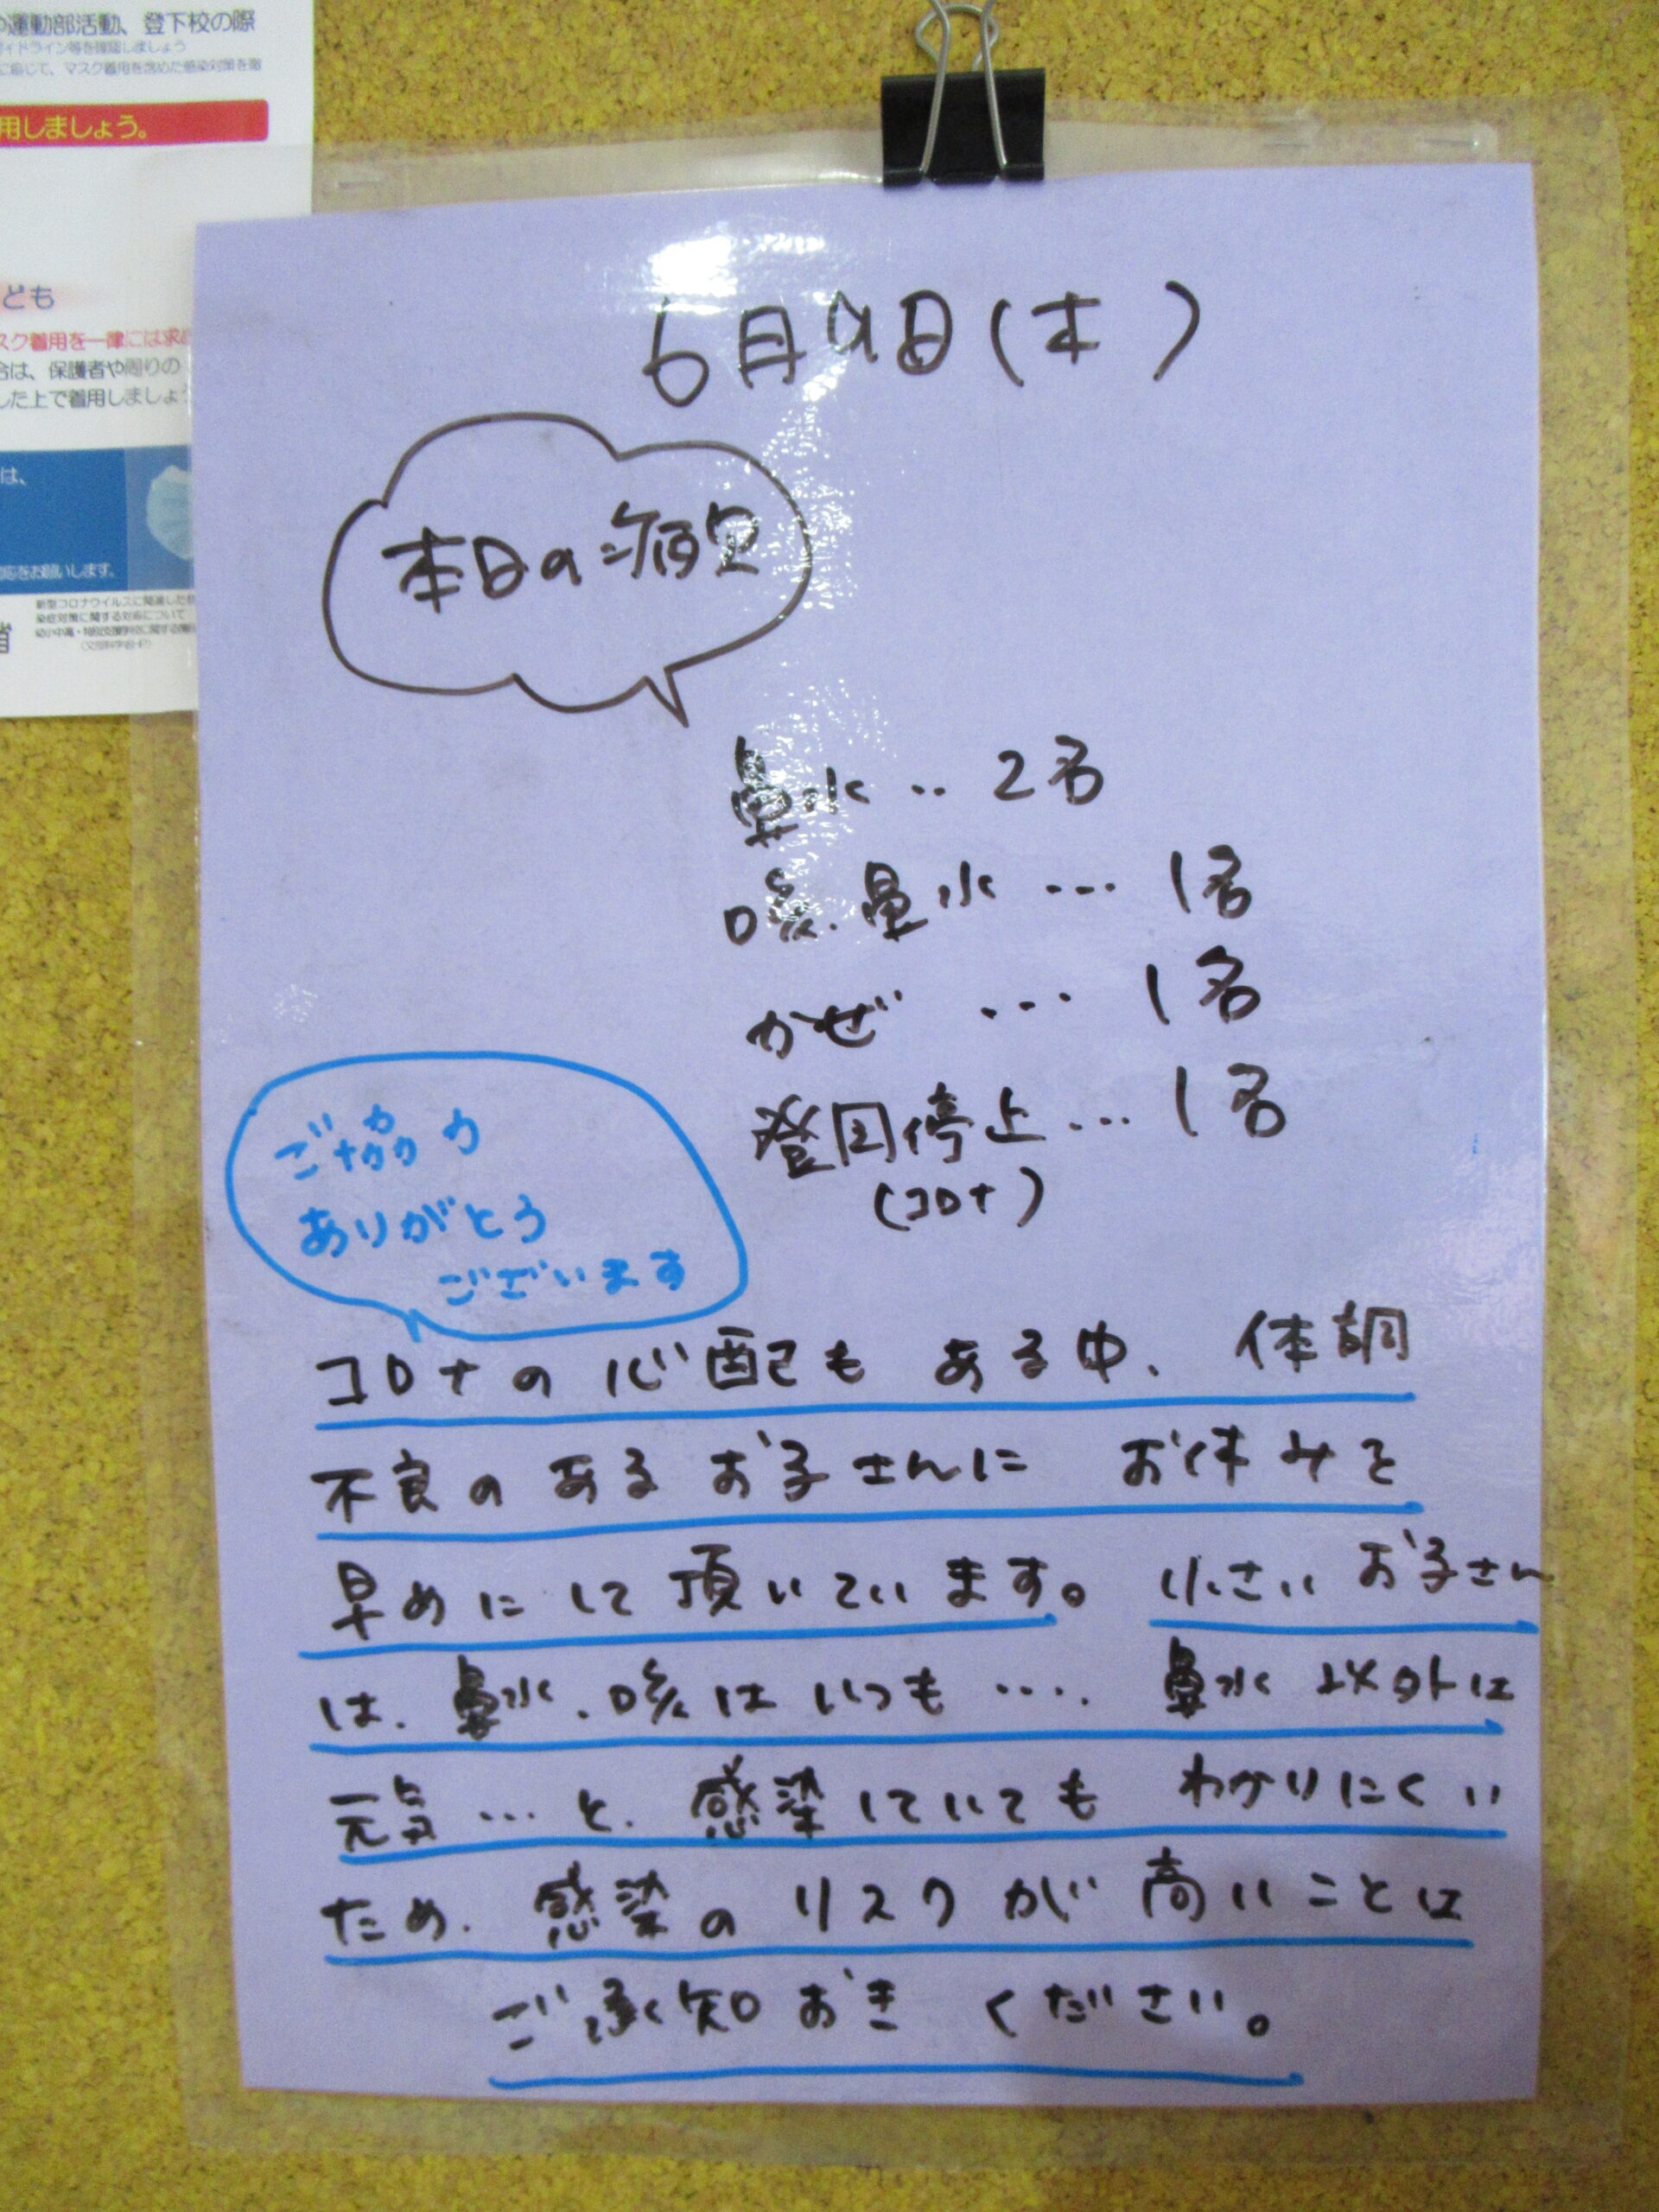 や運動部活動、登下校の際
ガイドライン等を確認しましょう
に応じて、マスク着用を含めた感染対策を徹
用しましょう。
ども
スク着用を一律には求め
合は、保護者や周りの
した上で着用しましょう
は、
応をお願いします。
新型コロナウイルスに関連した感
染症対策に関する対応について
(文部科学省HP)
6月9日(木)
本日の病欠
鼻水‥2名
咳.鼻水…1名
かぜ…1名
登園停止…1名
(コロナ)
ご協力
ありがとう
ございます
コロナの心配もある中、体調
不良のあるお子さんにお休みを
早めにして頂いています。小さいお子さん
は、鼻水、咳はいつも‥‥鼻水以外は
元気…と、感染していてもわかりにくい
ため、感染のリスクが高いことは
ご承知おきください。